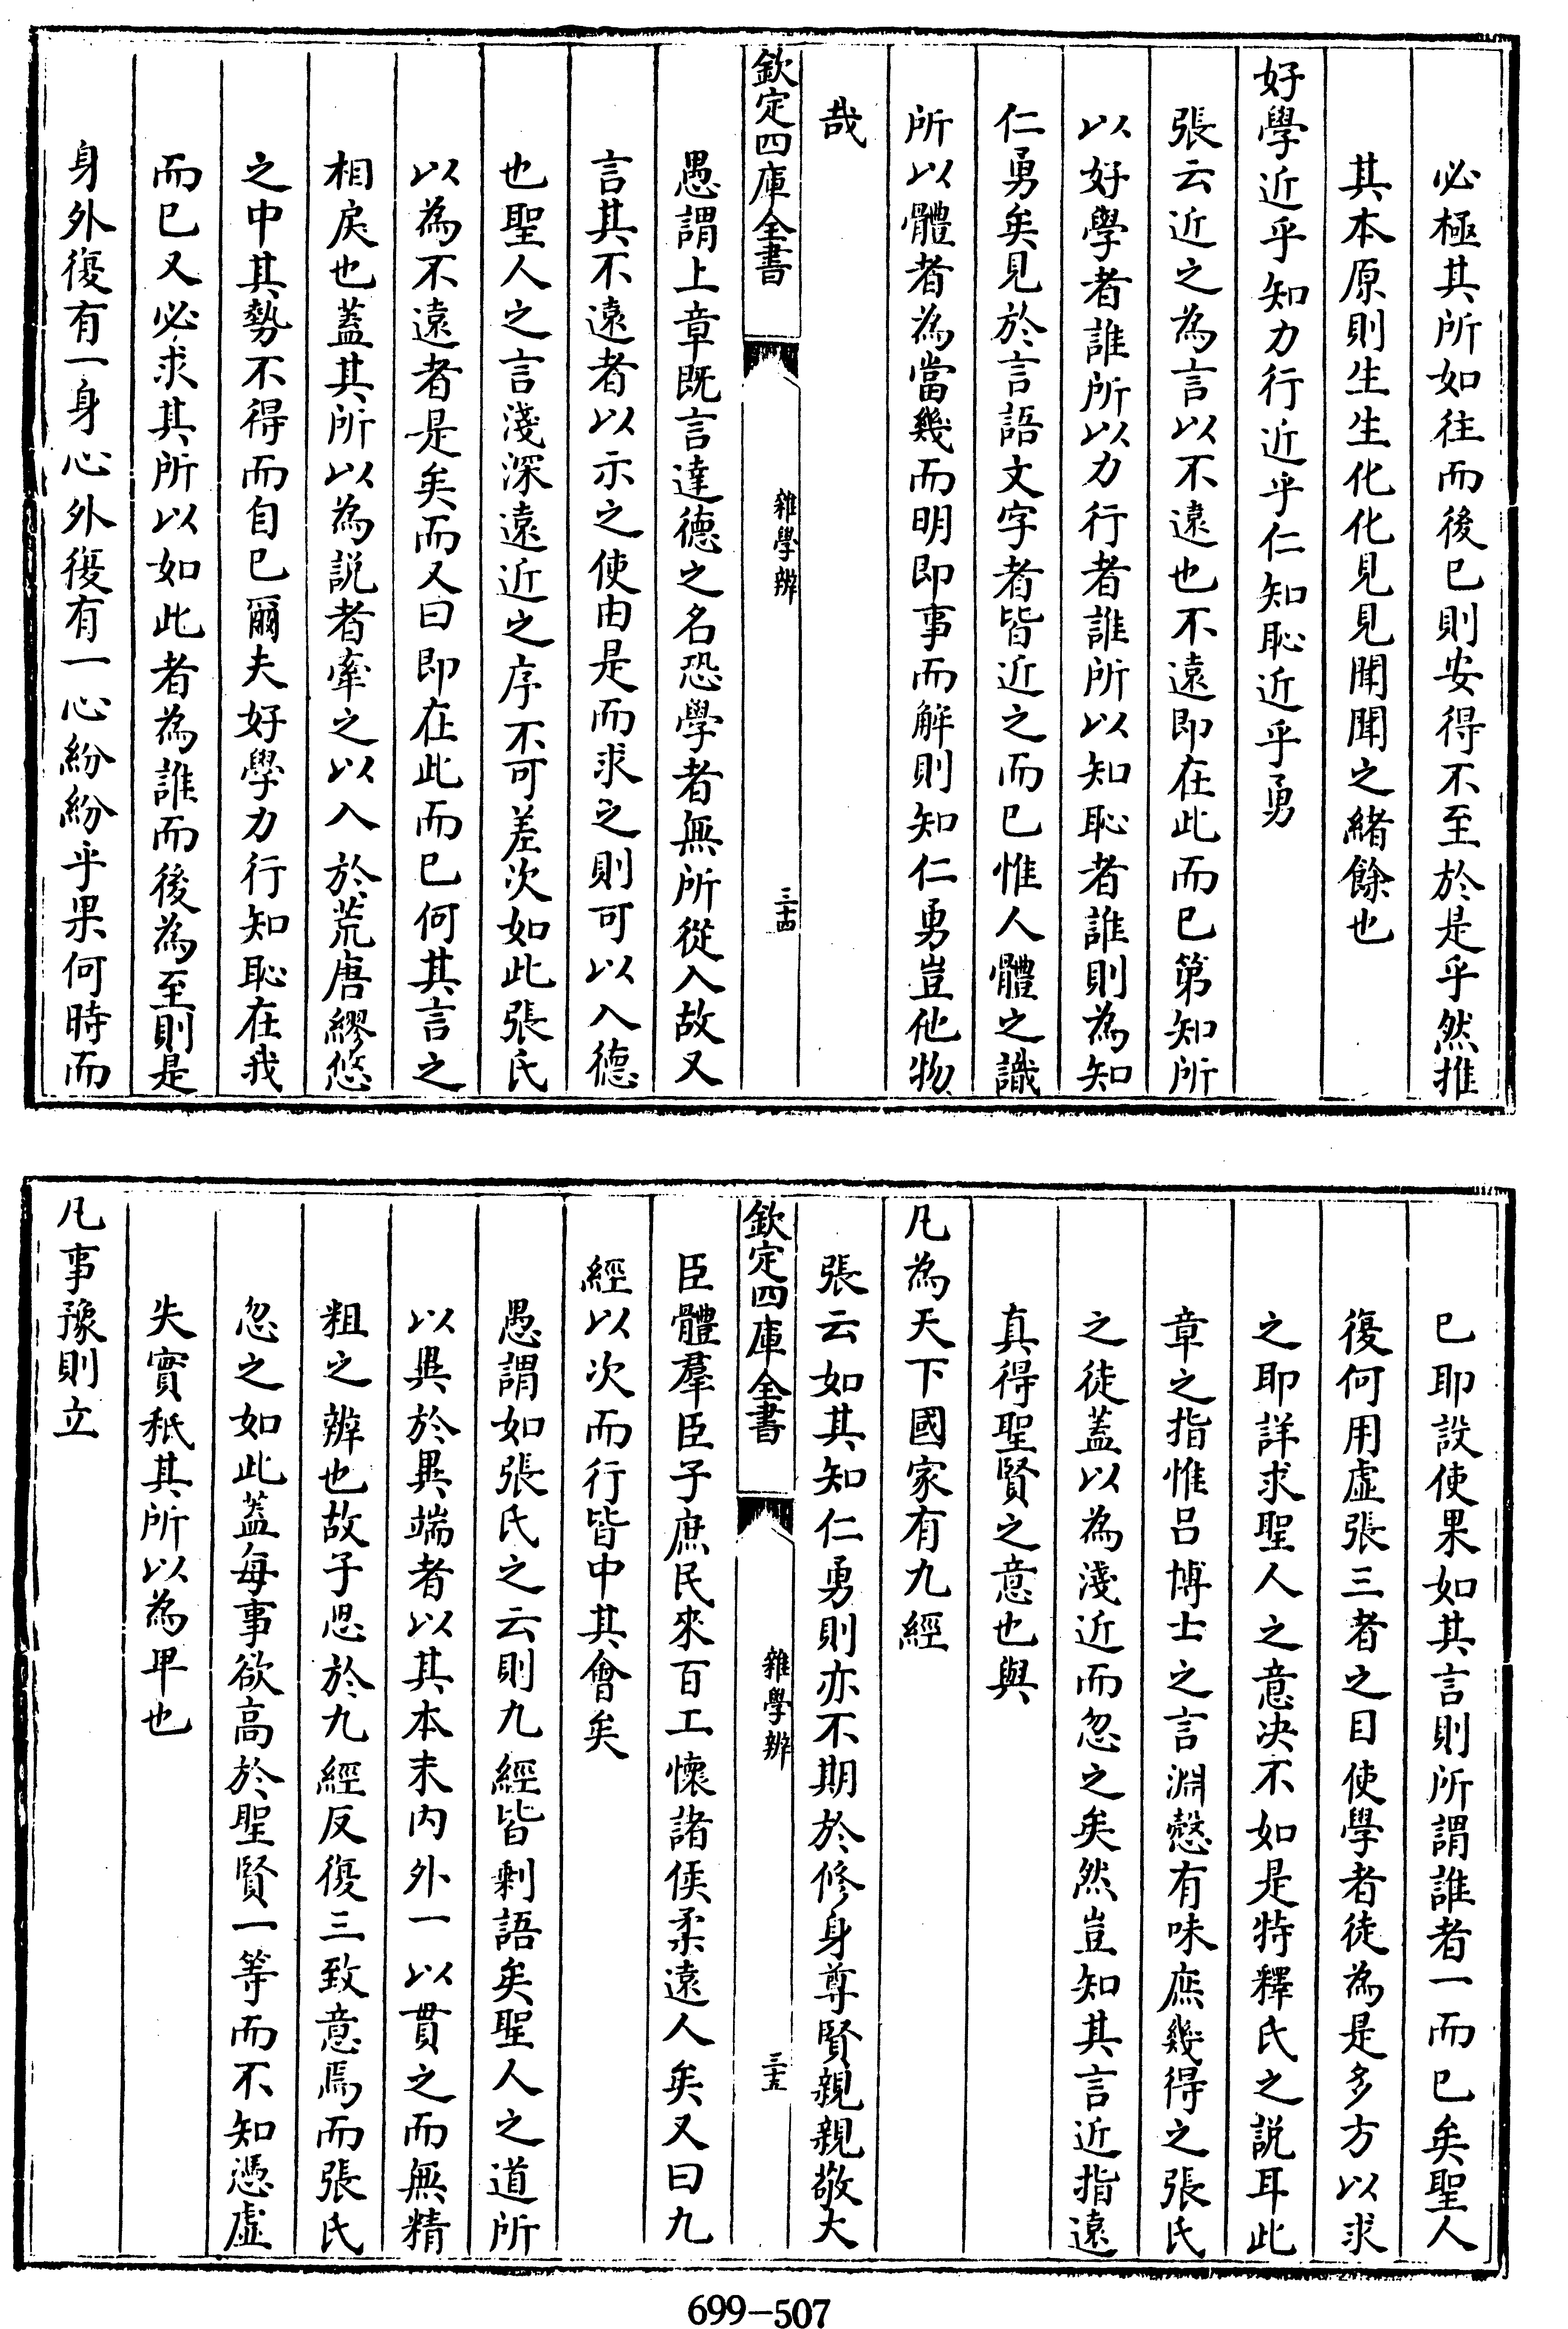 必極其所如往而後已則安得不至於是乎然推
其本原則生生化化見見聞聞之緒餘也
好學近乎知力行近乎仁知恥近乎勇
張云近之為言以不遠也不遠即在此而已第知所
以好學者誰所以力行者誰所以知恥者誰則為知
仁勇矣見於言語文字者皆近之而已惟人體之識
所以體者為當幾而明即事而解則知仁勇豈他物
哉
欽定四庫全書
雜學辨
三十四
愚謂上章既言達德之名恐學者無所從入故又
言其不遠者以示之使由是而求之則可以入德
也聖人之言淺深遠近之序不可差次如此張氏
以為不遠者是矣而又曰即在此而已何其言之
相戾也蓋其所以為説者牽之以入於荒唐繆悠
之中其勢不得而自已爾夫好學力行知恥在我
而已又必求其所以如此者為誰而後為至則是
身外復有一身心外復有一心紛紛乎果何時而
已耶設使果如其言則所謂誰者一而已矣聖人
復何用虛張三者之目使學者徒為是多方以求
之耶詳求聖人之意决不如是特釋氏之説耳此
章之指惟吕博士之言淵慤有味庶幾得之張氏
之徒蓋以為淺近而忽之矣然豈知其言近指遠
真得聖賢之意也與
凡為天下國家有九經
張云如其知仁勇則亦不期於修身尊賢親親敬大
欽定四庫全書
雜學辨
三十五
臣體羣臣子庶民來百工懷諸侯柔遠人矣又曰九
經以次而行皆中其會矣
愚謂如張氏之云則九經皆剩語矣聖人之道所
以異於異端者以其本末内外一以貫之而無精
粗之辨也故子思於九經反復三致意焉而張氏
忽之如此蓋每事欲高於聖賢一等而不知憑虛
失實秖其所以為卑也
凡事豫則立
699-507